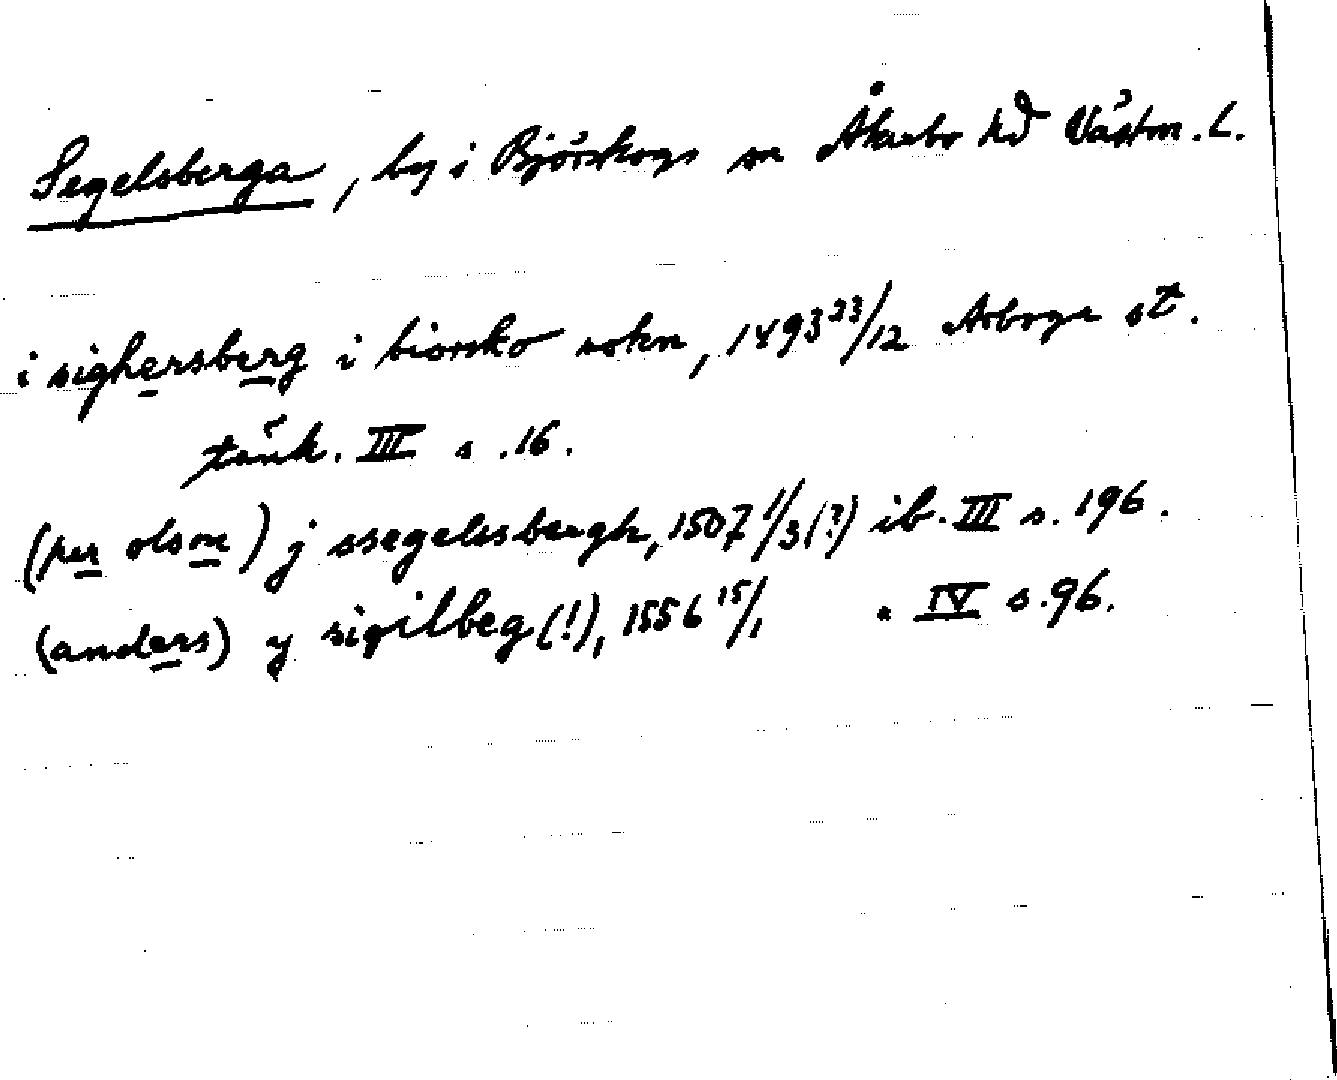 Segelsberga, by i Björskogs sn Åkerbo hd Västm. L.
i sighersberg i biorsko sokn, 1493 23/12 Arboga st.
tänk. III s. 16.
(per olson) j ssegelssbergh, 1507 1/3 (?) ib. III s. 196.
(anders) y sigilbeg (!), 1556 15/1 " IV s. 96.